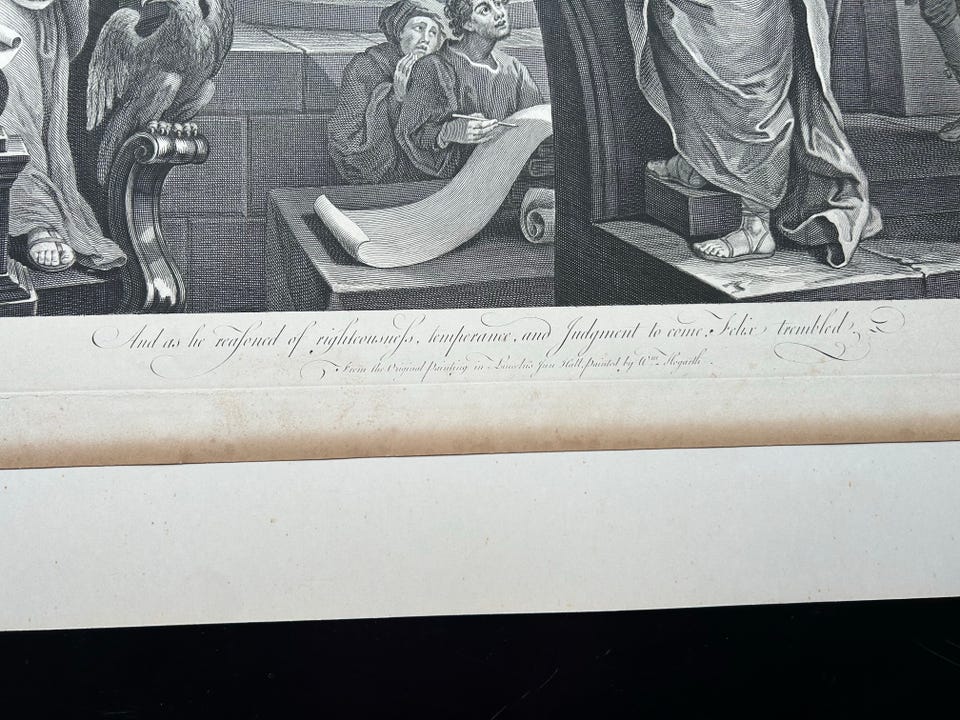 And as he reasoned of righteousness, temperance, and Judgment to come, Felix trembled
From the Original Painting in Lincoln's Inn Hall, Painted by Wm. Hogarth.